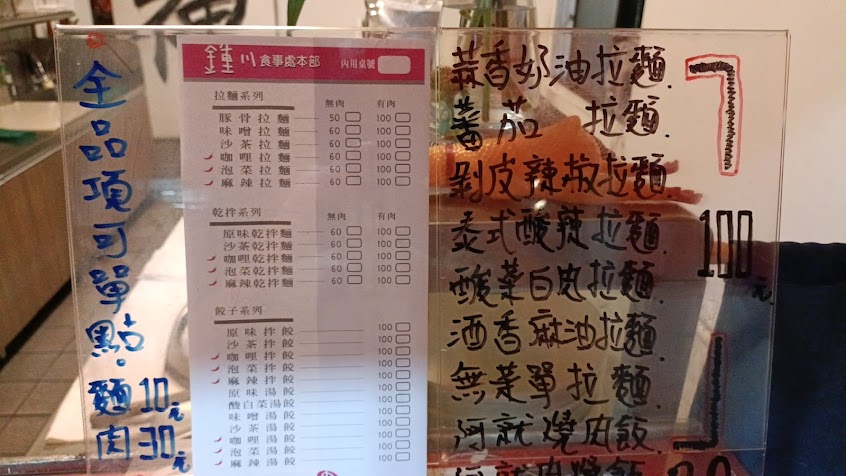 全品項可單點。
麵10元
肉30元
鍾川食事處本部 內用桌號
拉麵系列 無肉 有肉
豚骨拉麵 50 100
味噌拉麵 60 100
沙茶拉麵 60 100
咖哩拉麵 60 100
泡菜拉麵 60 100
麻辣拉麵 60 100
乾拌系列 無肉 有肉
原味乾拌麵 60 100
沙茶乾拌麵 60 100
咖哩乾拌麵 60 100
泡菜乾拌麵 60 100
麻辣乾拌麵 60 100
餃子系列
原味拌餃 100
沙茶拌餃 100
咖哩拌餃 100
泡菜拌餃 100
麻辣拌餃 100
原味湯餃 100
酸白菜湯餃 100
味噌湯餃 100
沙茶湯餃 100
咖哩湯餃 100
泡菜湯餃 100
麻辣湯餃 100
蒜香奶油拉麵.
蕃茄 拉麵.
剝皮辣椒拉麵
泰式酸辣拉麵.
酸菜白肉拉麵.
酒香麻油拉麵.
無菜單拉麵.
阿就燒肉飯.
100元